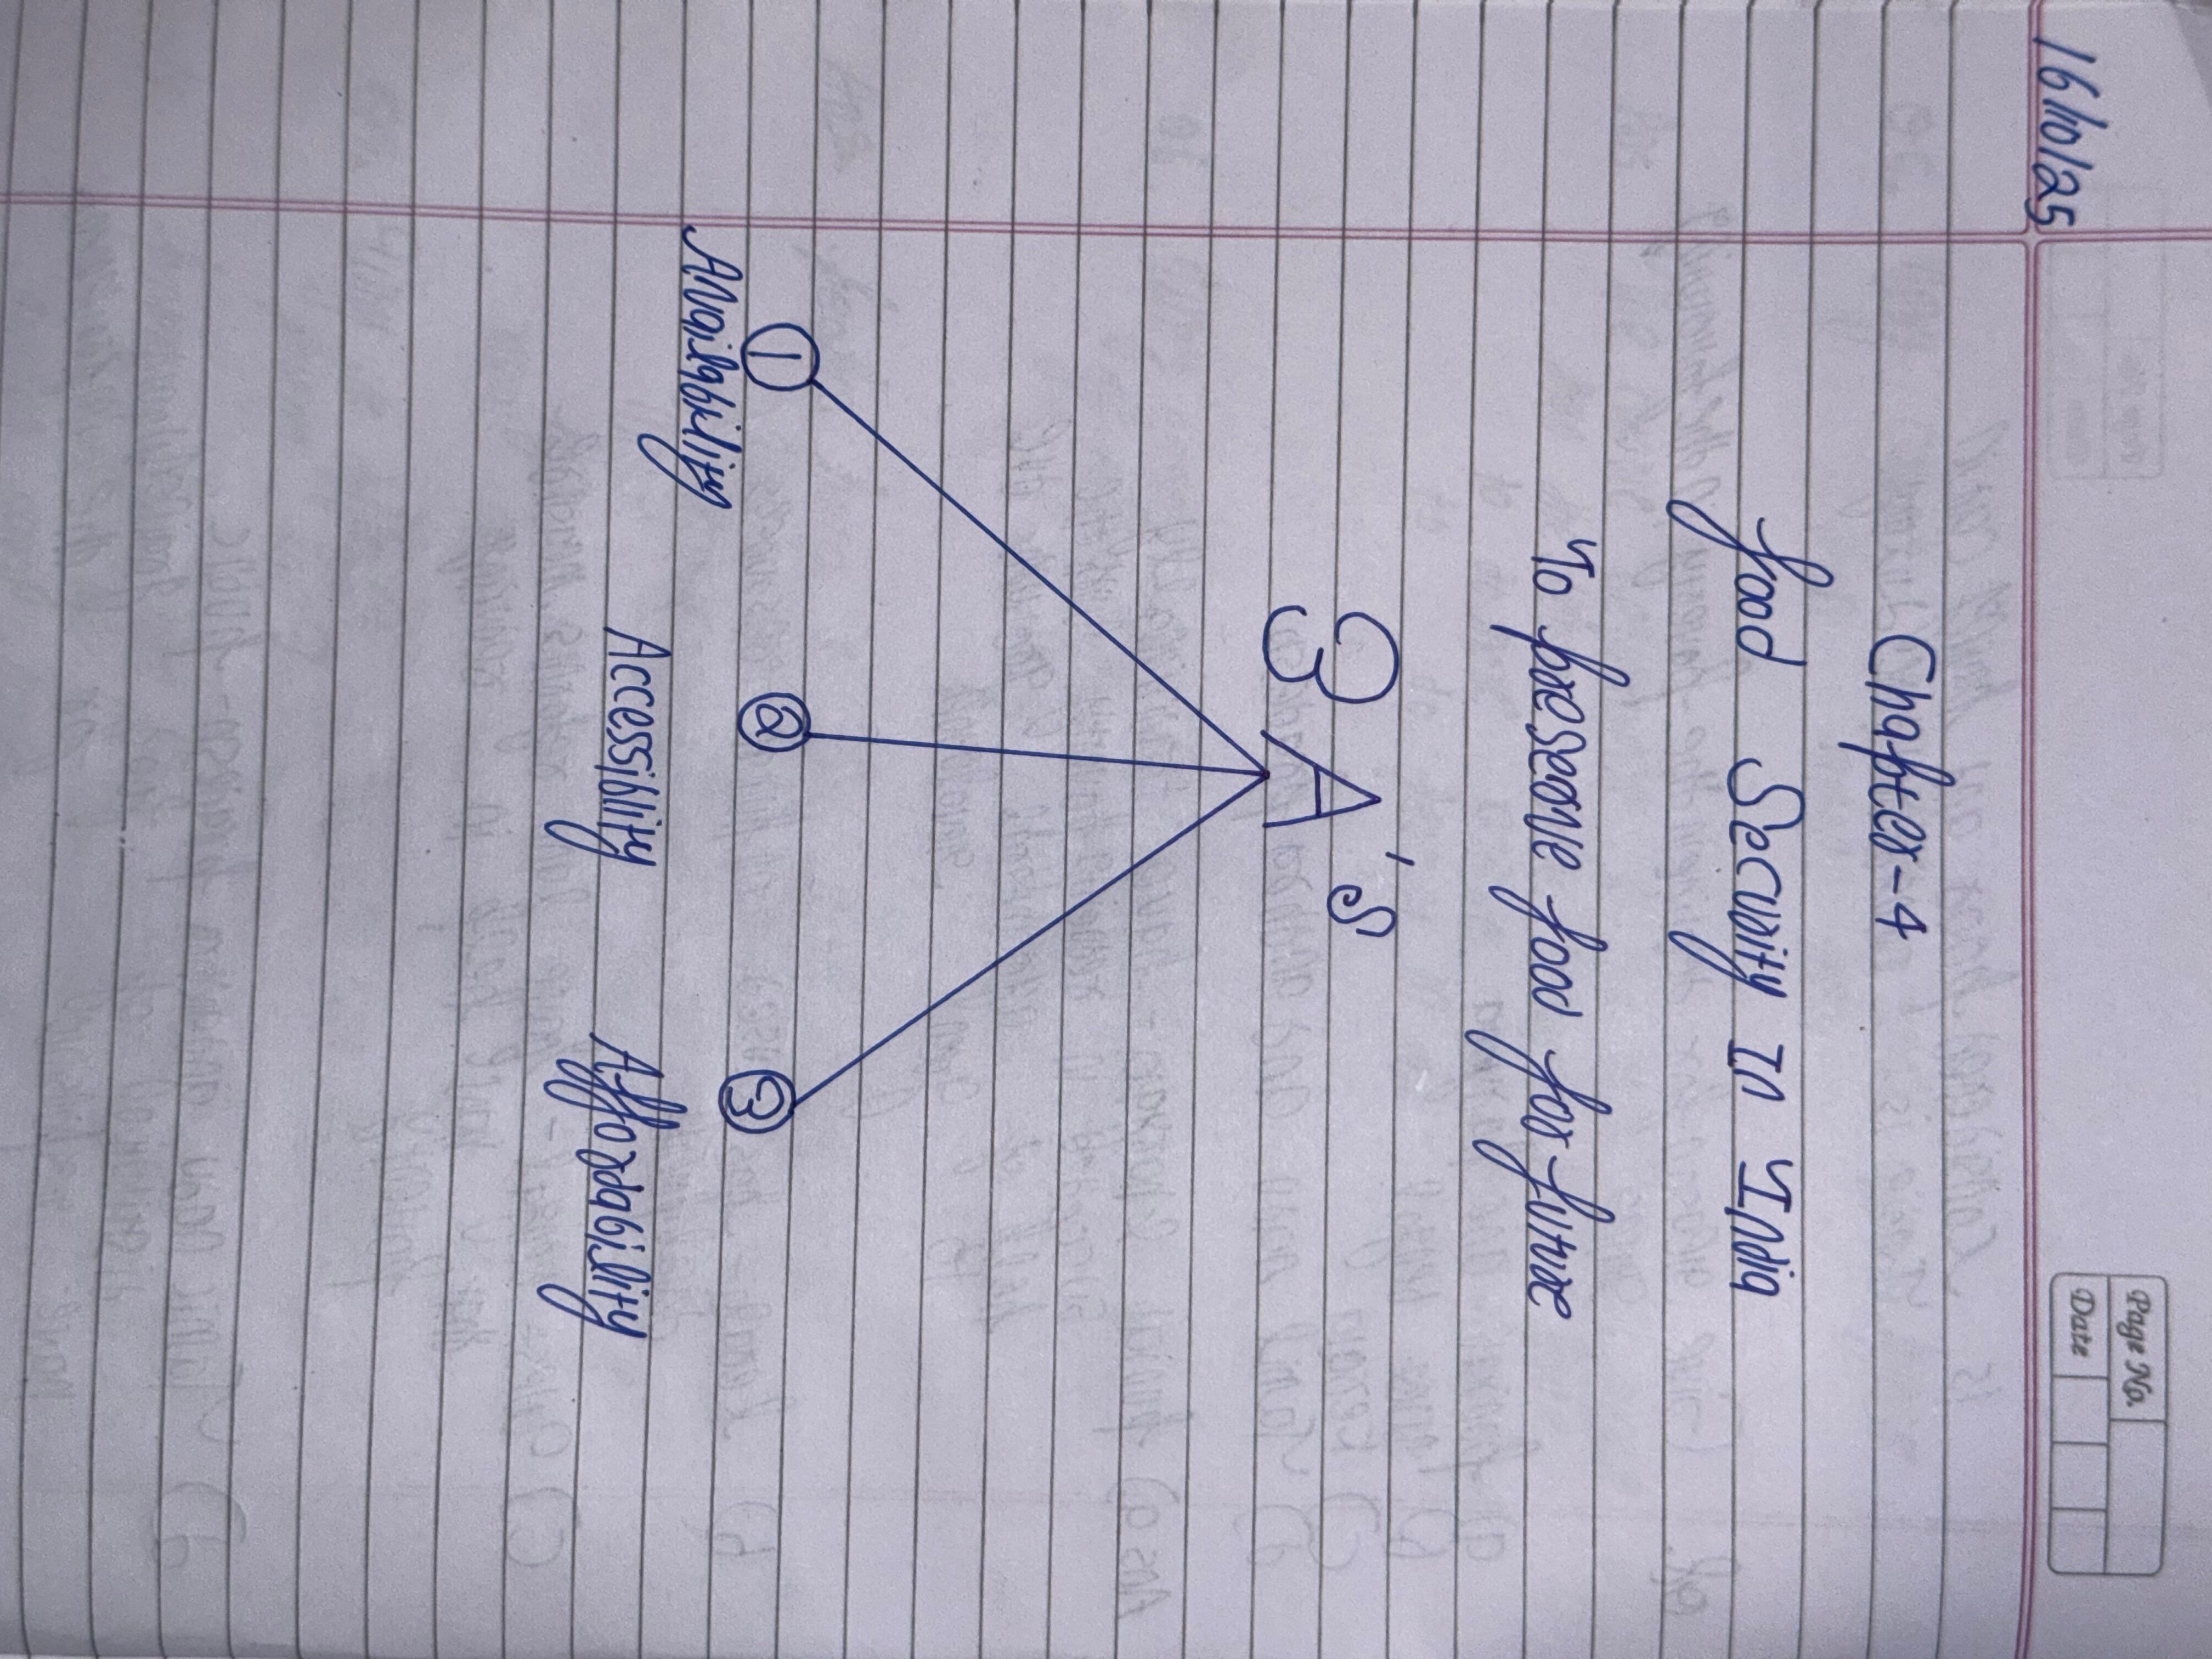 16/10/25
Page No.
Date
Chapter-4
food Security In India
To preserve food for future
3 A's
1 2 3
Availability Accessiblity Affordability